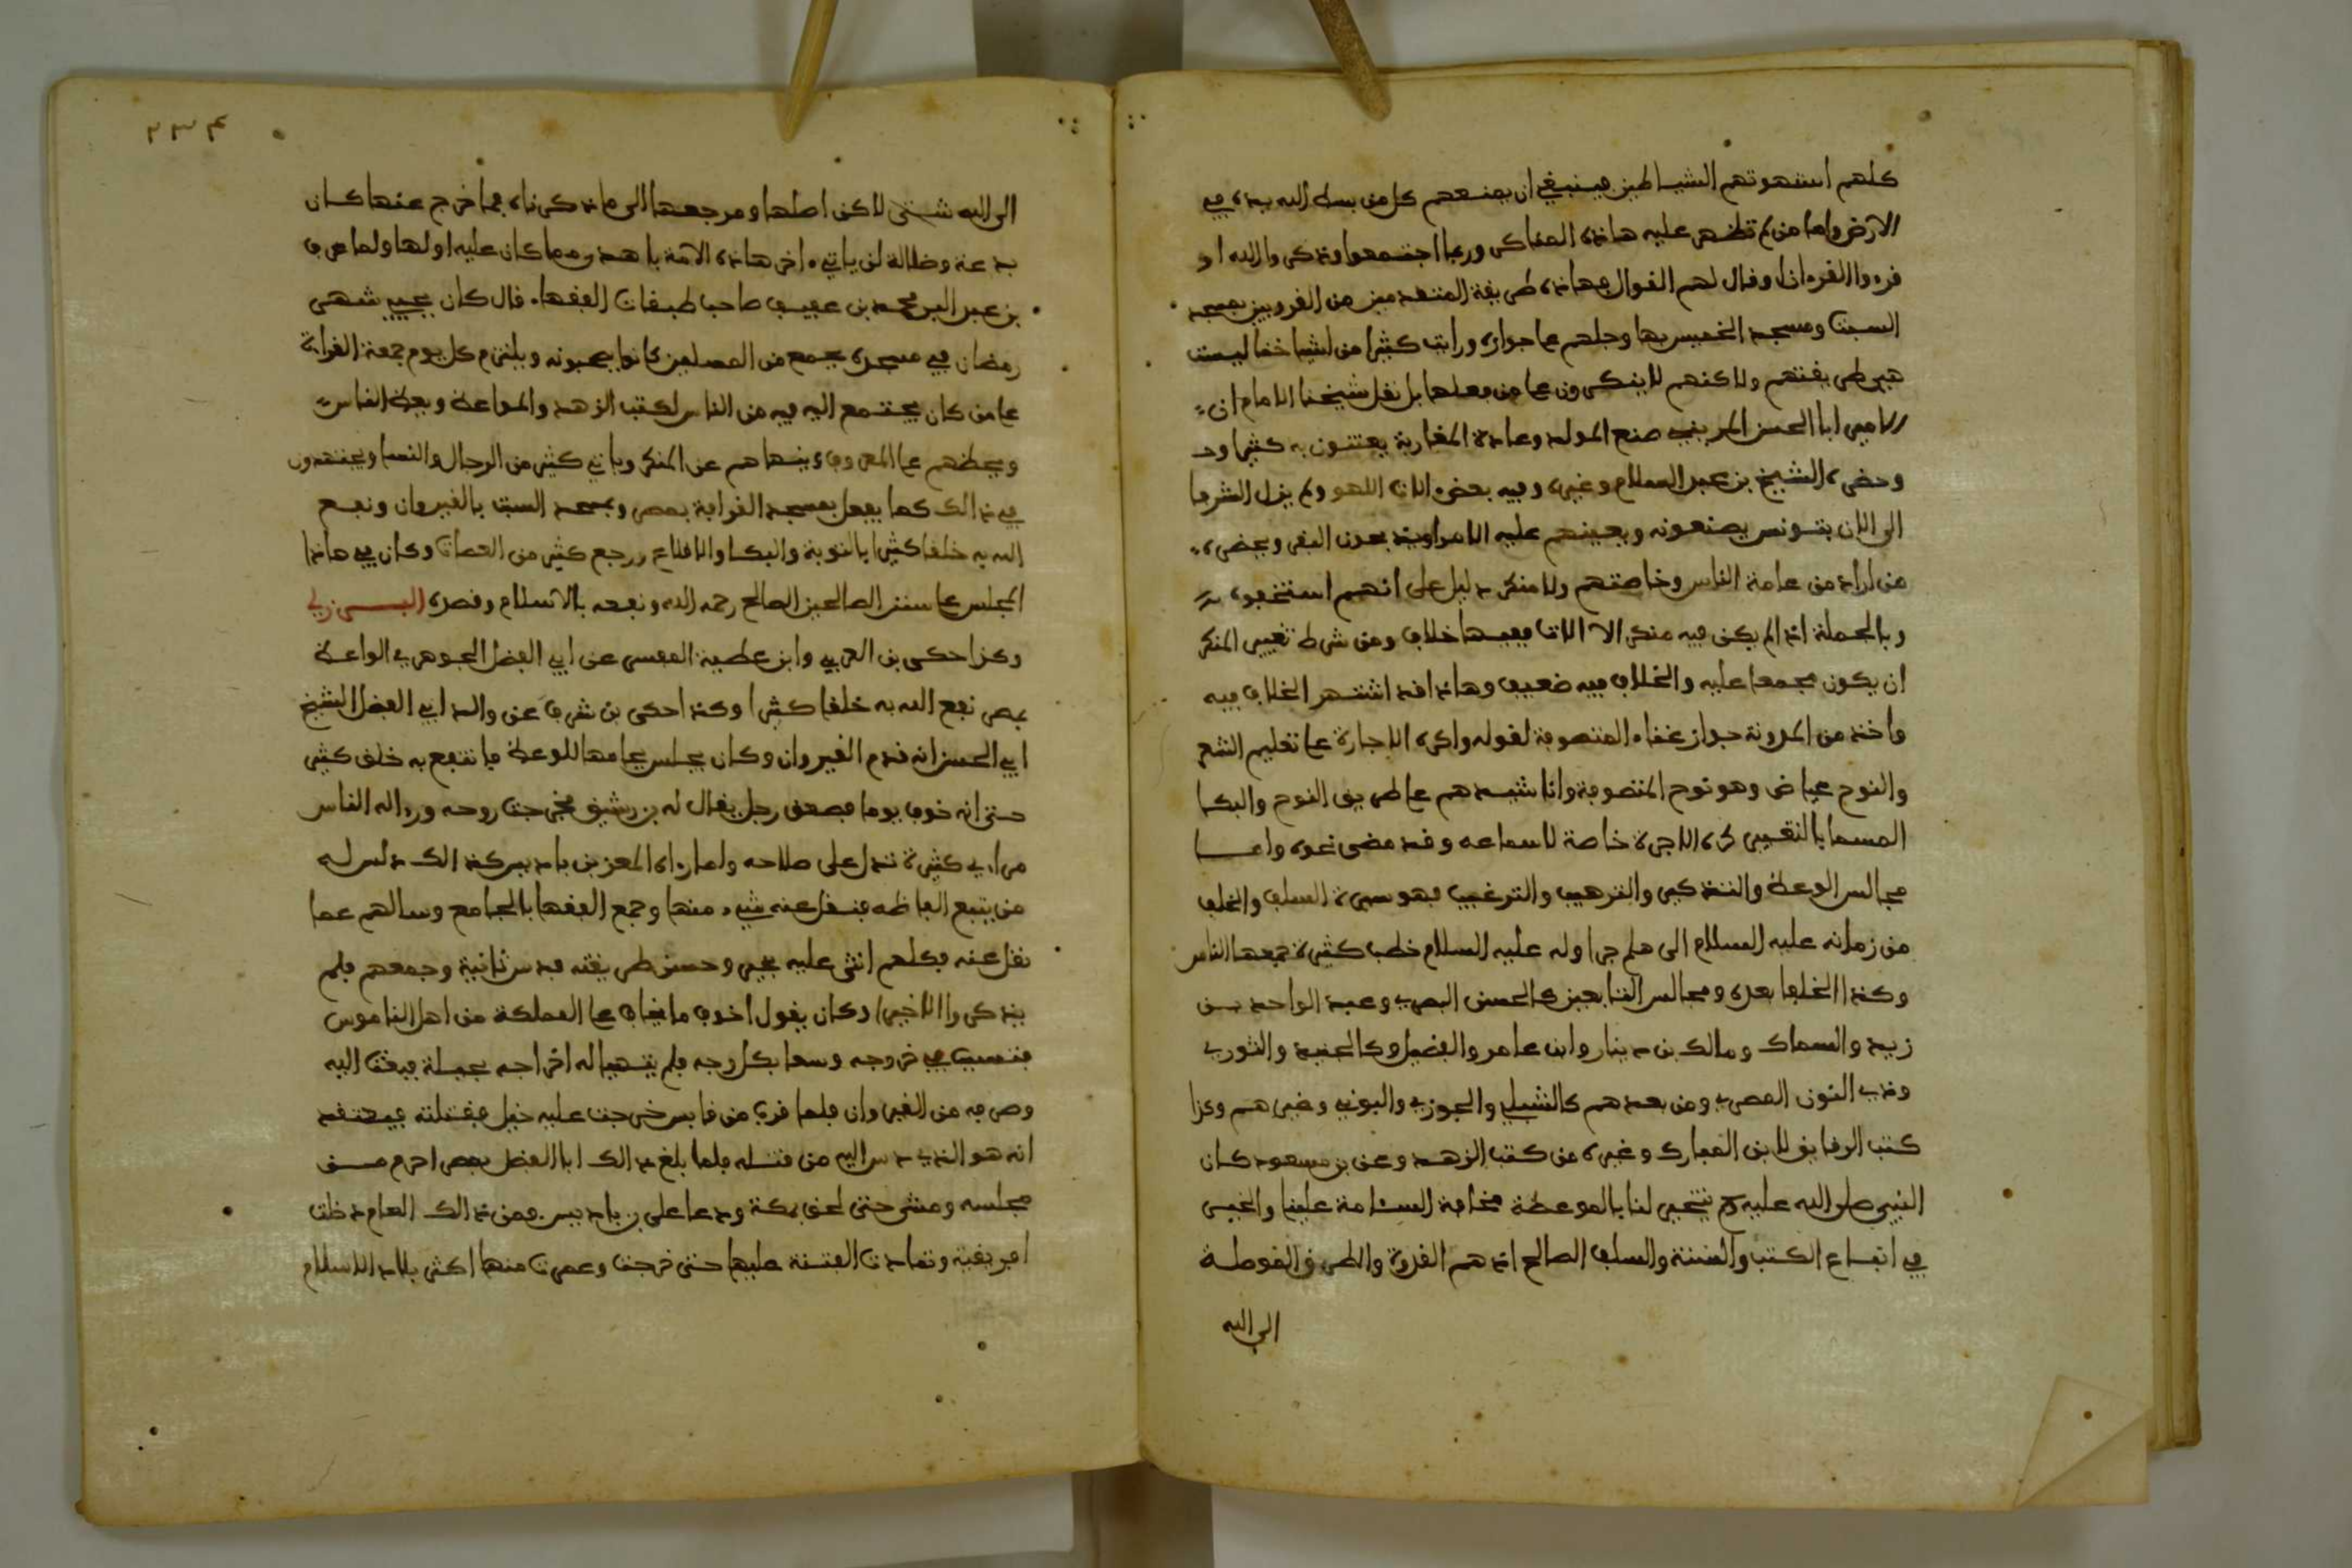 كلهم استهوتهم الشياطين فينبغي ان يمنعهم كل من بسط الله يده في
الارض واما من لم تظهر عليه هاذه المناكر وربما اجتمعوا وذكروا الله او
قرءوا القرءان او قال لهم القوال فهاذه طريقة المتعبدين من القرويين بمسجد
السبت ومسجد الخميس بها وجلهم على جوازه ورايت كثيرا من اشياخنا ليست
هي طريقتهم ولاكنهم لا ينكرون على من فعلها بل نقل شيخنا الامام ان
الامير ابا الحسن المريني صنع المولد وعادة المغاربة يعتنون به كثيرا
وحضره الشيخ بن عبد السلام وغيره وفيه بعض الات اللهو ولم يزل الشرفا
الى الان بتونس يصنعونه ويعينهم عليه الامرا ويحضره
من اراد من عامة الناس وخاصتهم ولا منكر دليل على انهم استخفوه
وبالجملة اذا لم يكن فيه منكر الا الالات ففيها خلاف ومن شرط تغيير المنكر
ان يكون مجمعا عليه والخلاف فيه ضعيف وهاذا قد اشتهر الخلاف فيه
واخذ من المدونة جواز غناء المتصوفة لقوله واكره الاجارة على تعليم الشعر
والنوح عياض وهو نوح المتصوفة واناشيدهم على طريق النوح والبكا
المسما بالتغبير كره الاجرة خاصة لا سماعه وقد مضى نحوه واما
مجالس الوعظ والتذكير والترهيب والترغيب فهو سيرة السلف والخلف
من زمانه عليه السلام الى هلم جرا وله عليه السلام خطب كثيرة جمعها الناس
وكذا الخلفا بعده ومجالس التابعين كالحسن البصري وعبد الواحد بن
زيد والسماك ومالك بن دينار وابن عامر والفضيل وكالجنيد والثوري
وذي النون المصري ومن بعدهم كالشبلي والجوزي والبوني وغيرهم وكذا
كتب الرقايق لابن المبارك وغيره من كتب الزهد وعن بن مسعود كان
النبي صلى الله عليه وسلم يتحير لنا بالموعظة مخافة السئامة علينا والخير
في اتباع الكتب والسنة والسلف الصالح اذ هم القدوة والطرق الموصلة
الى الله
٢٣٤
الى الله شتى لاكن اصلها ومرجعها الى ما ذكرناه فما خرج عنها كان
بدعة وضلالة لن ياتي ءاخر هاذه الامة باهدى مما كان عليه اولها ولما عرف
بن عبد البر محمد بن عفيف صاحب طبقات الفقهاء قال كان يحيي شهر
رمضان في مسجده بجمع من المصلين كانوا يحبونه ويلتزم كل يوم جمعة القراءة
على من كان يجتمع اليه فيه من الناس لكتب الزهد والمواعظ ويعظ الناس
ويحظهم على المعروف وينهاهم عن المنكر وياتي كثير من الرجال والنسا ويجتهدون
في ذالك كما يفعل بمسجد القرافة بمصر وبمسجد السبت بالقيروان ونفع
الله به خلقا كثيرا بالتوبة والبكا والاقلاع ورجع كثير من العصات وكان في هاذا
المجلس على سنن الصالحين الصالح رحمه الله ونفعه بالاسلام وقصده البرزلي
وكذا حكى بن العربي وابن عطية المفسر عن ابي الفضل الجوهري الواعظ
بمصر نفع الله به خلقا كثيرا وكذا حكى بن شرف عن والد ابي الفضل الشيخ
ابي الحسن انه قدم القيروان وكان يجلس بجامعها للوعظ فانتفع به خلق كثير
حتى انه خوف يوما فصعق رجل يقال له بن رشيق فخرجت روحه ورءا له الناس
مراءي كثيرة تدل على صلاحه ولما راى المعز بن باديس كذالك دس له
من يتبع الفاظه فنقل عنه شيء منها وجمع الفقها بالجامع وسالهم عما
نقل عنه فكلهم اثنى عليه بخير وحسن طريقته فدس ثانية وجمعهم فلم
يذكروا الا خيرا وكان يقول اخوف ما يخاف على المملكة من اهل الناموس
فتسبب في خروجه وسعا بكل وجه فلم يتهيا له اخراجه بحيلة فبعث اليه
وصرفه من القيروان فلما قرب من قابس خرجت عليه خيل فقتلته فيعتقد
انه هو الذي دس اليه من قتله فلما بلغ ذالك ابا الفضل بمصر احرم من
مجلسه ومشى حتى لحق بمكة ودعا على بن باديس فمن ذالك العام دخلت
افريقية وتمادت الفتنة عليها حتى خرجت وعمرت منها اكثر بلاد الاسلام